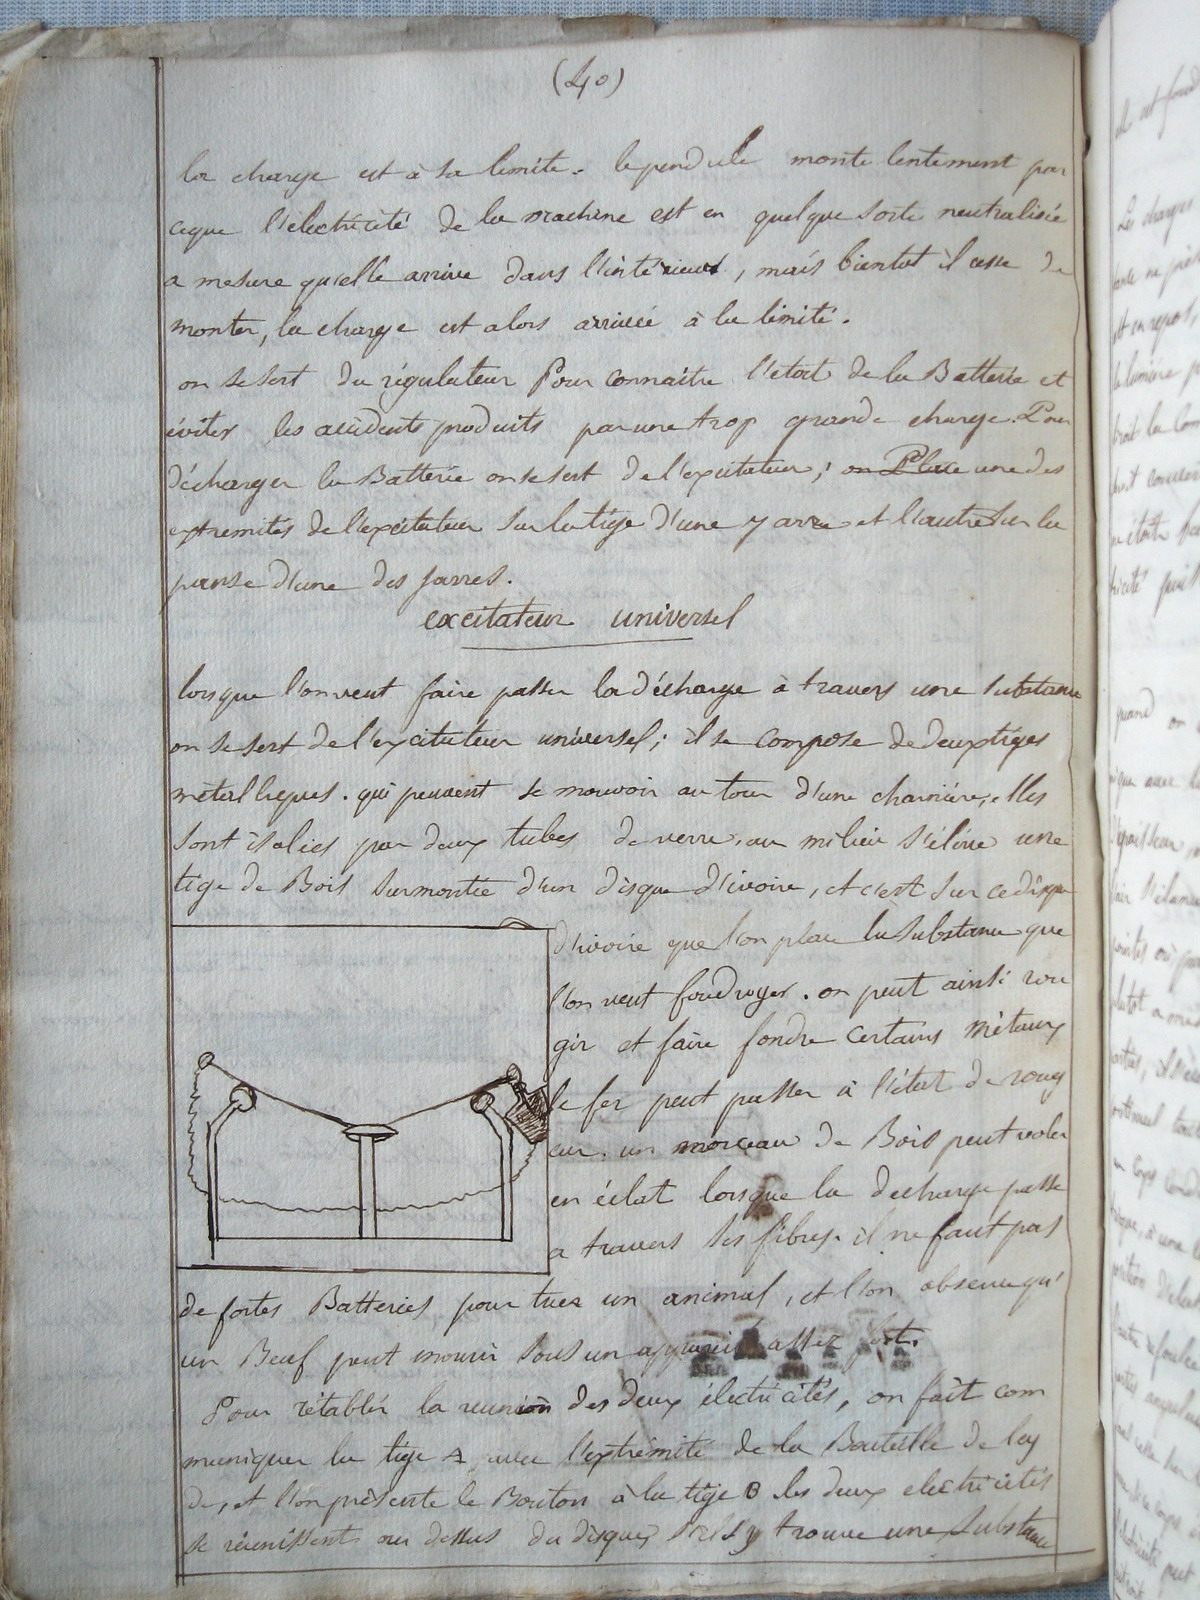 (40)
la charge est à sa limite. le pendule monte lentement par
ceque l'electricité de la machine est en quelque sorte neutralisée
a mesure qu'elle arrive dans l'intérieur, mais bientot il cesse de
monter, la charge est alors arrivée à la limite.
on se sert du régulateur Pour connaitre l'etat de la Batterie et
éviter les accidents produits par une trop grande charge. Pour
décharger la Batterie on se sert de l'excitateur; on Place une des
extremités de l'excitateur sur la tige d'une jarre et l'autre sur la
panse d'une des jarres.
excitateur universel
lorsque l'on veut faire passer la décharge à travers une substance
on se sert de l'excitateur universel; il se compose de deux tiges
métalliques. qui peuvent se mouvoir au tour d'une charnière, elles
sont isolées par deux tubes de verre, au milieu s'élève une
tige de Bois surmontée d'un disque d'ivoire, et c'est sur ce disque
d'ivoire que l'on place la substance que
l'on veut foudroyer. on peut ainsi rou
gir et faire fondre certains métaux
le fer peut passer à l'état de roug
eur. un morceau de Bois peut voler
en éclat lorsque la decharge passe
a travers ses fibres. il ne faut pas
de fortes Batteries pour tuer un animal, et l'on observe qu'
un Beuf peut mourir sous un appareil assez fort.
Pour rétablir la reunion des deux électricités, on fait com
muniquer la tige A avec l'extrémité de la Bouteille de ley
de, et l'on présente le Bouton à la tige B les deux electricités
se réunissent au dessus du disque, s'il s'y trouve une substance